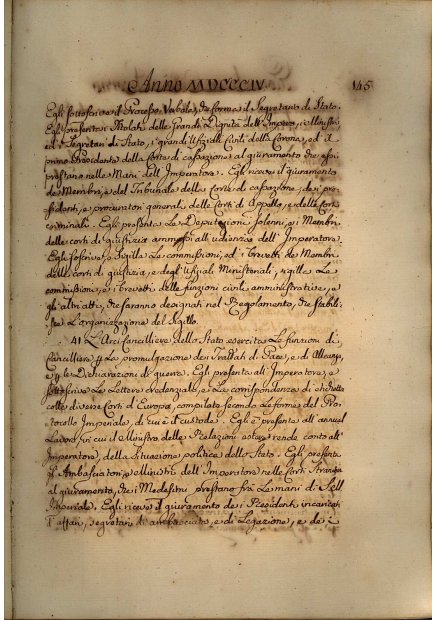 Anno MDCCCIV 145
Egli sottoscrive il Processo Verbale, che forma il Segretario di Stato.
Egli presenta i Titolati delle Grandi Dignità dell'Impero, i Ministri,
ed i Segretarj di Stato, i grandi Uffiziali Civili della Corona, ed il
primo Presidente della Corte di cassazione al giuramento, che essi
prestano nelle Mani dell'Imperatore. Egli riceve il giuramento
de Membri, e del Tribunale della Corte di cassazione, dei pre-
sidenti, e procuratori generali delle Corti di Appello, e delle Corti
criminali. Egli presenta le Deputazioni solenni, e i Membri
delle corti di giustizia ammessi all'udienza dell'Imperatore.
Egli soscrive, e sigilla le commissioni, ed i brevetti de Membri
delle corti di giustizia, e degli Uffiziali Ministeriali, sigilla le
commissioni, e i brevetti delle funzioni civili amministrative, e
gli altri atti, che saranno designati nel Regolamento, che stabili-
sce l'organizazione del Sigillo.
41 L'Arci Cancelliere dello Stato esercita le funzioni di
Cancelliere p la promulgazione dei Trattati di Pace, e di Alleanza,
e p le Dichiarazioni di guerra. Egli presenta all'Imperatore, e
sottoscrive le Lettere credenziali, e la corrispondenza di etichetta
colle diverse Corti d'Europa, compilate secondo le forme del Pro-
tocollo Imperiale, di cui è il custode. Egli è presente all'annual
Lavoro in cui il Ministro delle Relazioni estere rende conto all'
Imperatore della Situazione politica dello Stato. Egli presenta
gl'Ambasciatori, e Ministri dell'Imperatore nelle Corti Straniere
al giuramento, che i Medesimi prestano frà le mani di S. M.
Imperiale. Egli riceve il giuramento dei Residenti incaricati
d'affari, segretarj di ambasciata, e di Legazione, e dei